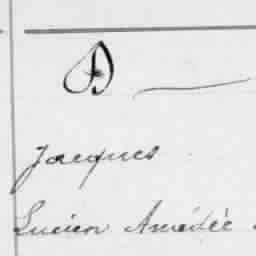 D
Jacques
Lucien Amédée